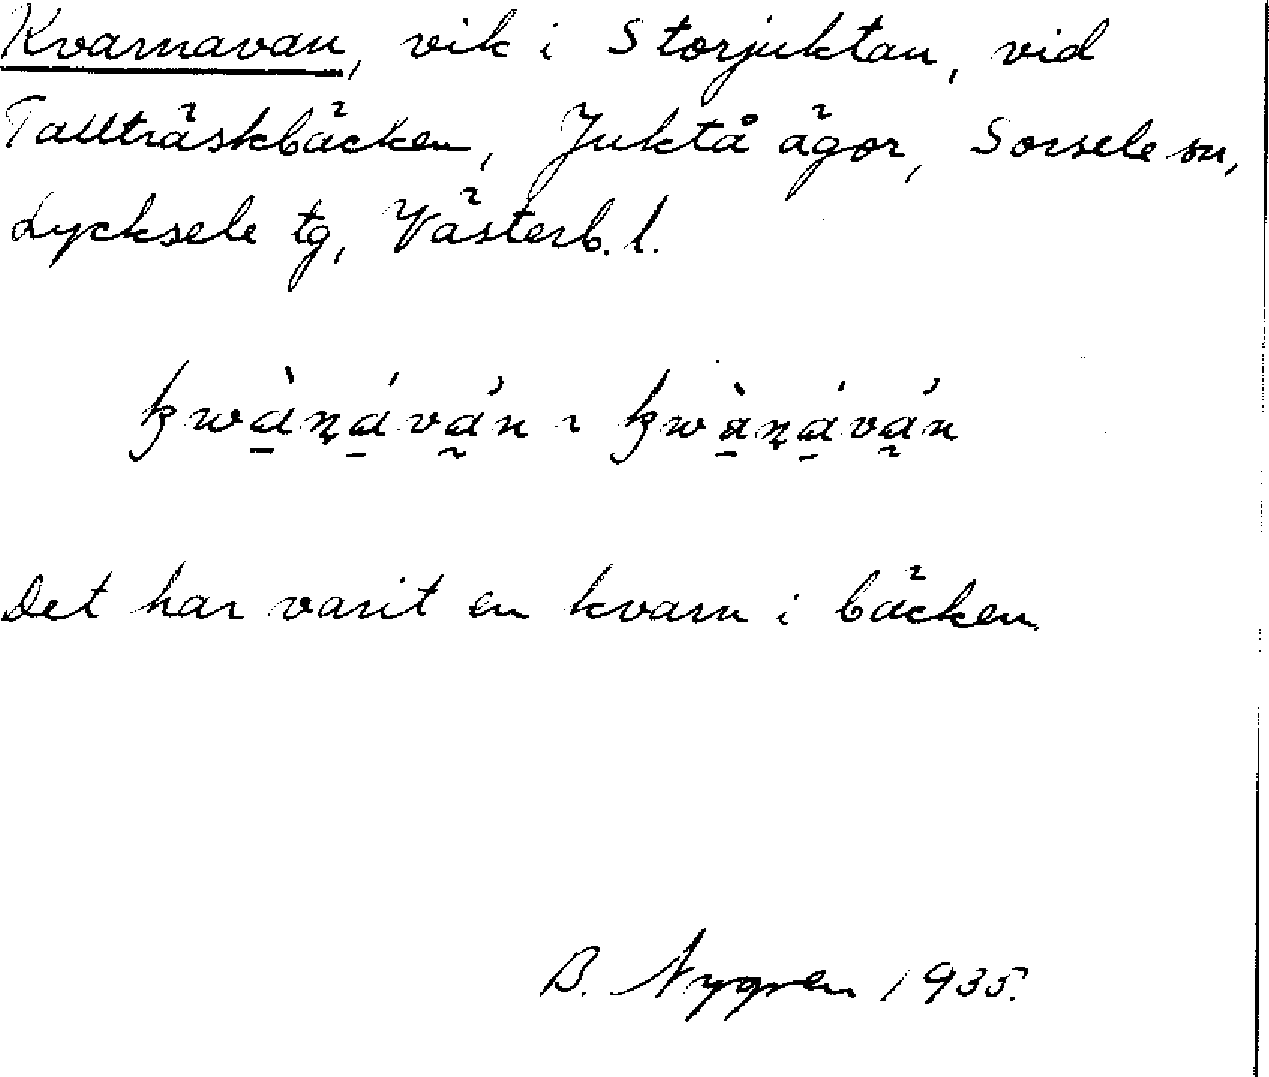 Kvarnavan, vik i Storjuktan, vid
Tallträskbäcken, Juktå ägor, Sorsele sn,
Lycksele tg, Västerb. l.
Det har varit en kvarn i bäcken.
B. Nygren 1935.